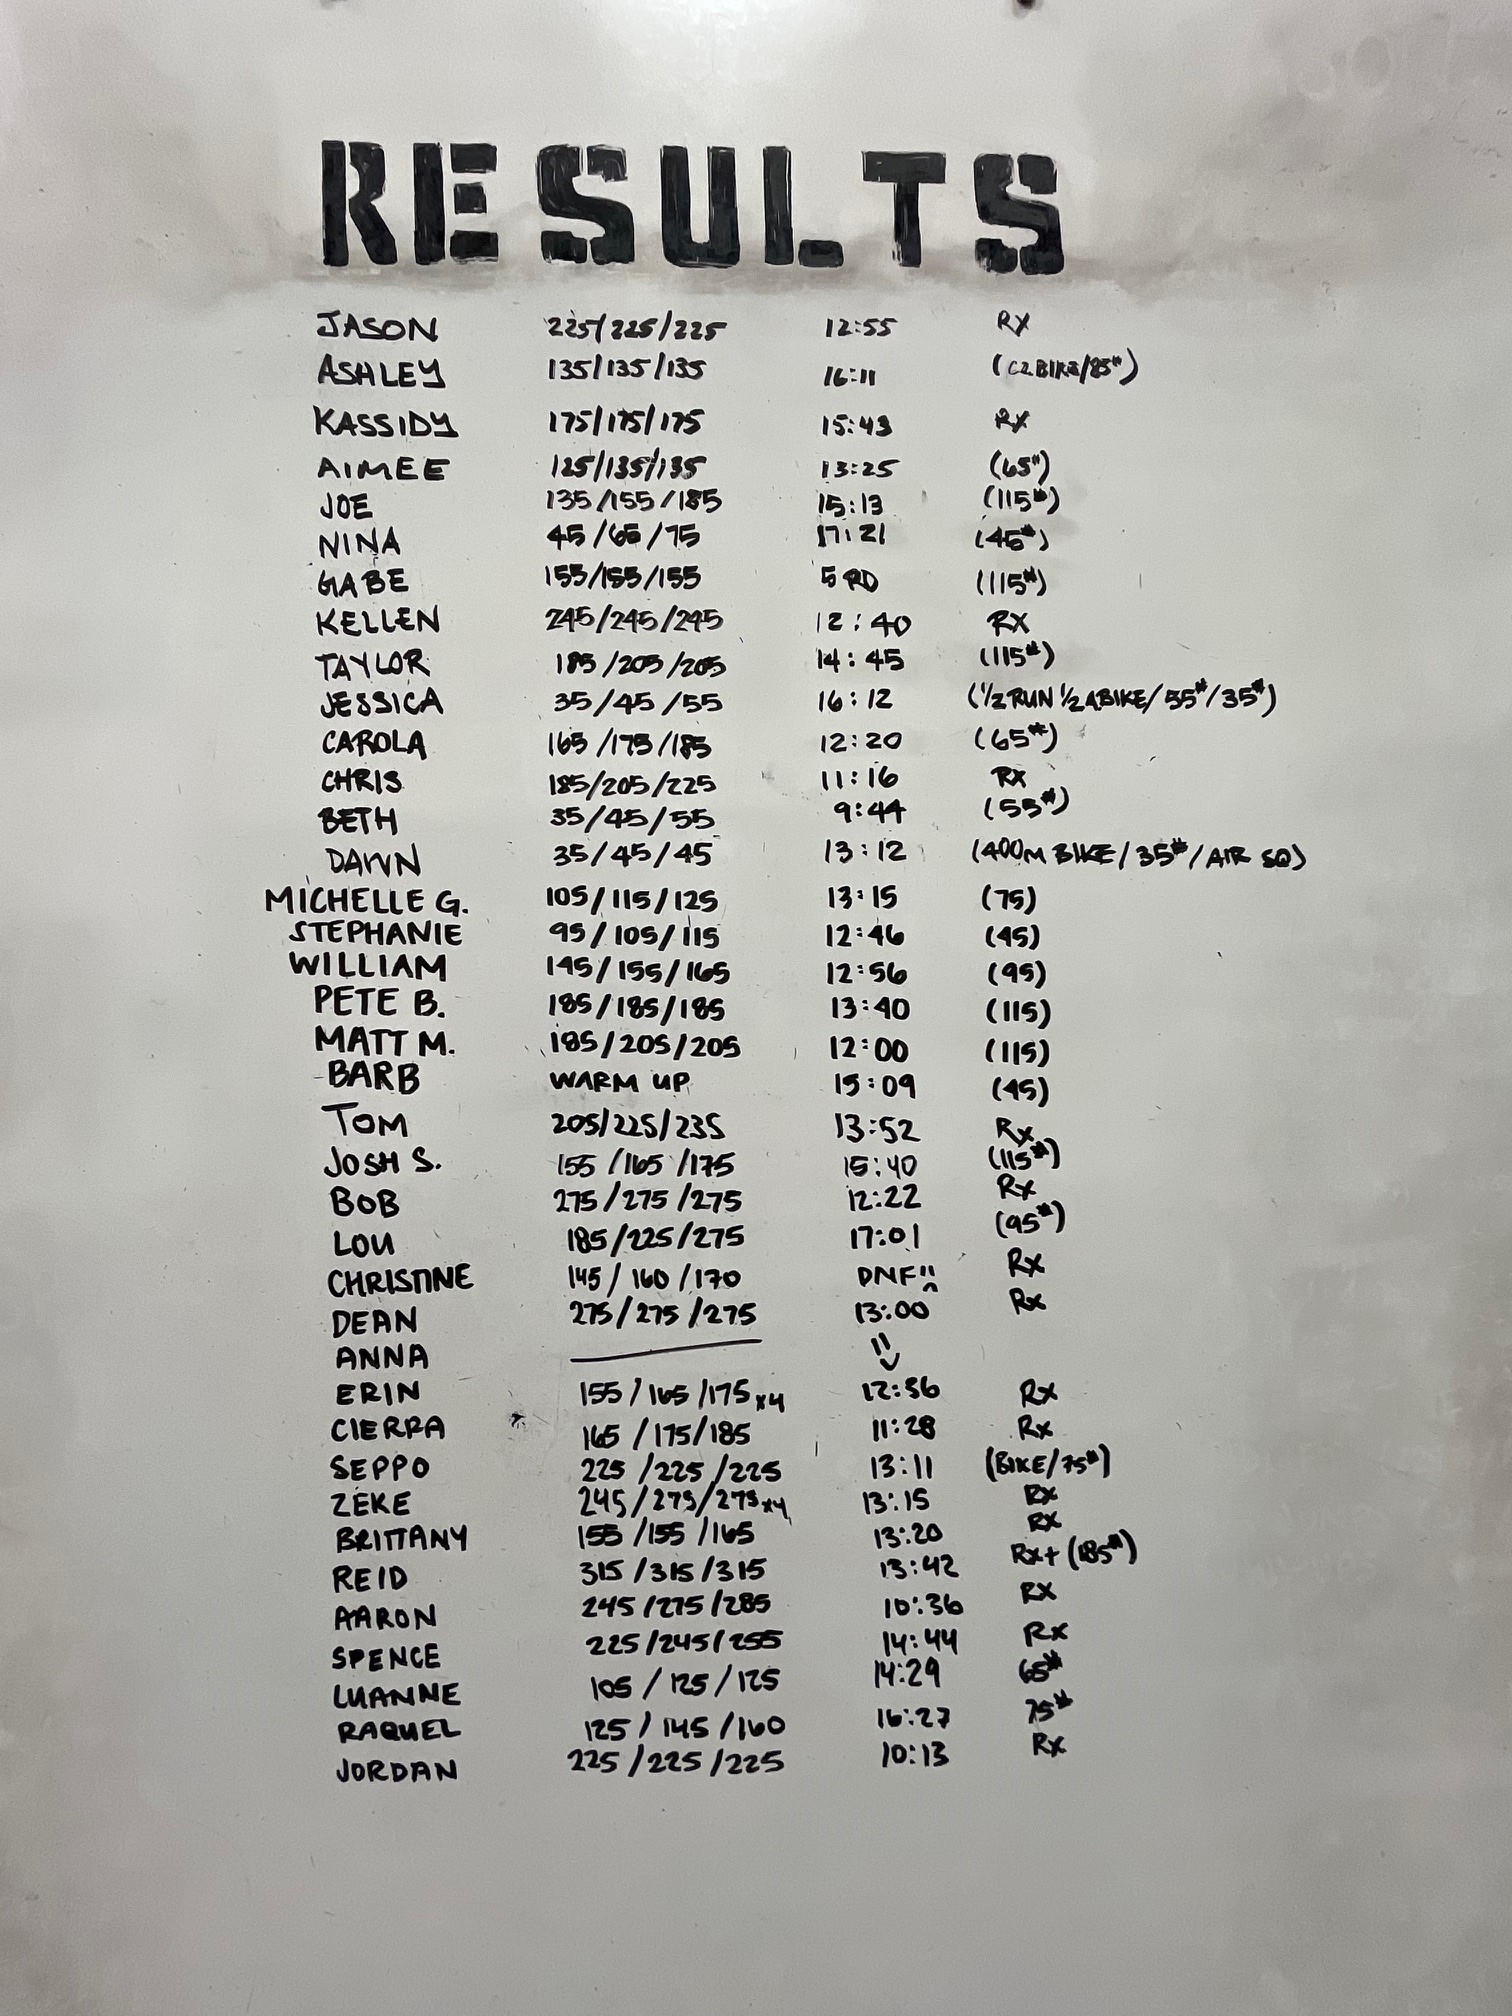 RESULTS
JASON 225/225/225 12:55 RX
ASHLEY 135/135/135 16:11 (C2BIKE/85#)
KASSIDY 175/175/175 15:43 RX
AIMEE 125/135/135 13:25 (65#)
JOE 135/155/185 15:13 (115#)
NINA 45/65/75 17:21 (45#)
GABE 155/155/155 5 RD (115#)
KELLEN 245/245/245 12:40 RX
TAYLOR 185/205/205 14:45 (115#)
JESSICA 35/45/55 16:12 (1/2 RUN 1/2 ABIKE/55#/35#)
CAROLA 165/175/185 12:20 (65#)
CHRIS 185/205/225 11:16 RX
BETH 35/45/55 9:44 (55#)
DAWN 35/45/45 13:12 (400M BIKE/35#/AIR SQ)
MICHELLE G. 105/115/125 13:15 (75)
STEPHANIE 95/105/115 12:46 (45)
WILLIAM 145/155/165 12:56 (95)
PETE B. 185/185/185 13:40 (115)
MATT M. 185/205/205 12:00 (115)
BARB WARM UP 15:09 (45)
TOM 205/225/235 13:52 Rx
JOSH S. 155/165/175 15:40 (115#)
BOB 275/275/275 12:22 Rx
LOU 185/225/275 17:01 (95#)
CHRISTINE 145/160/170 DNF Rx
DEAN 275/275/275 13:00 Rx
ANNA
ERIN 155/165/175 x4 12:56 Rx
CIERRA 165/175/185 11:28 Rx
SEPPO 225/225/225 13:11 (BIKE/75#)
ZEKE 245/275/275 x4 13:15 Rx
BRITTANY 155/155/165 13:20 Rx
REID 315/315/315 13:42 Rx+ (185#)
AARON 245/275/285 10:36 Rx
SPENCE 225/245/255 14:44 Rx
LUANNE 105/125/125 14:29 65#
RAQUEL 125/145/160 16:27 75#
JORDAN 225/225/225 10:13 Rx